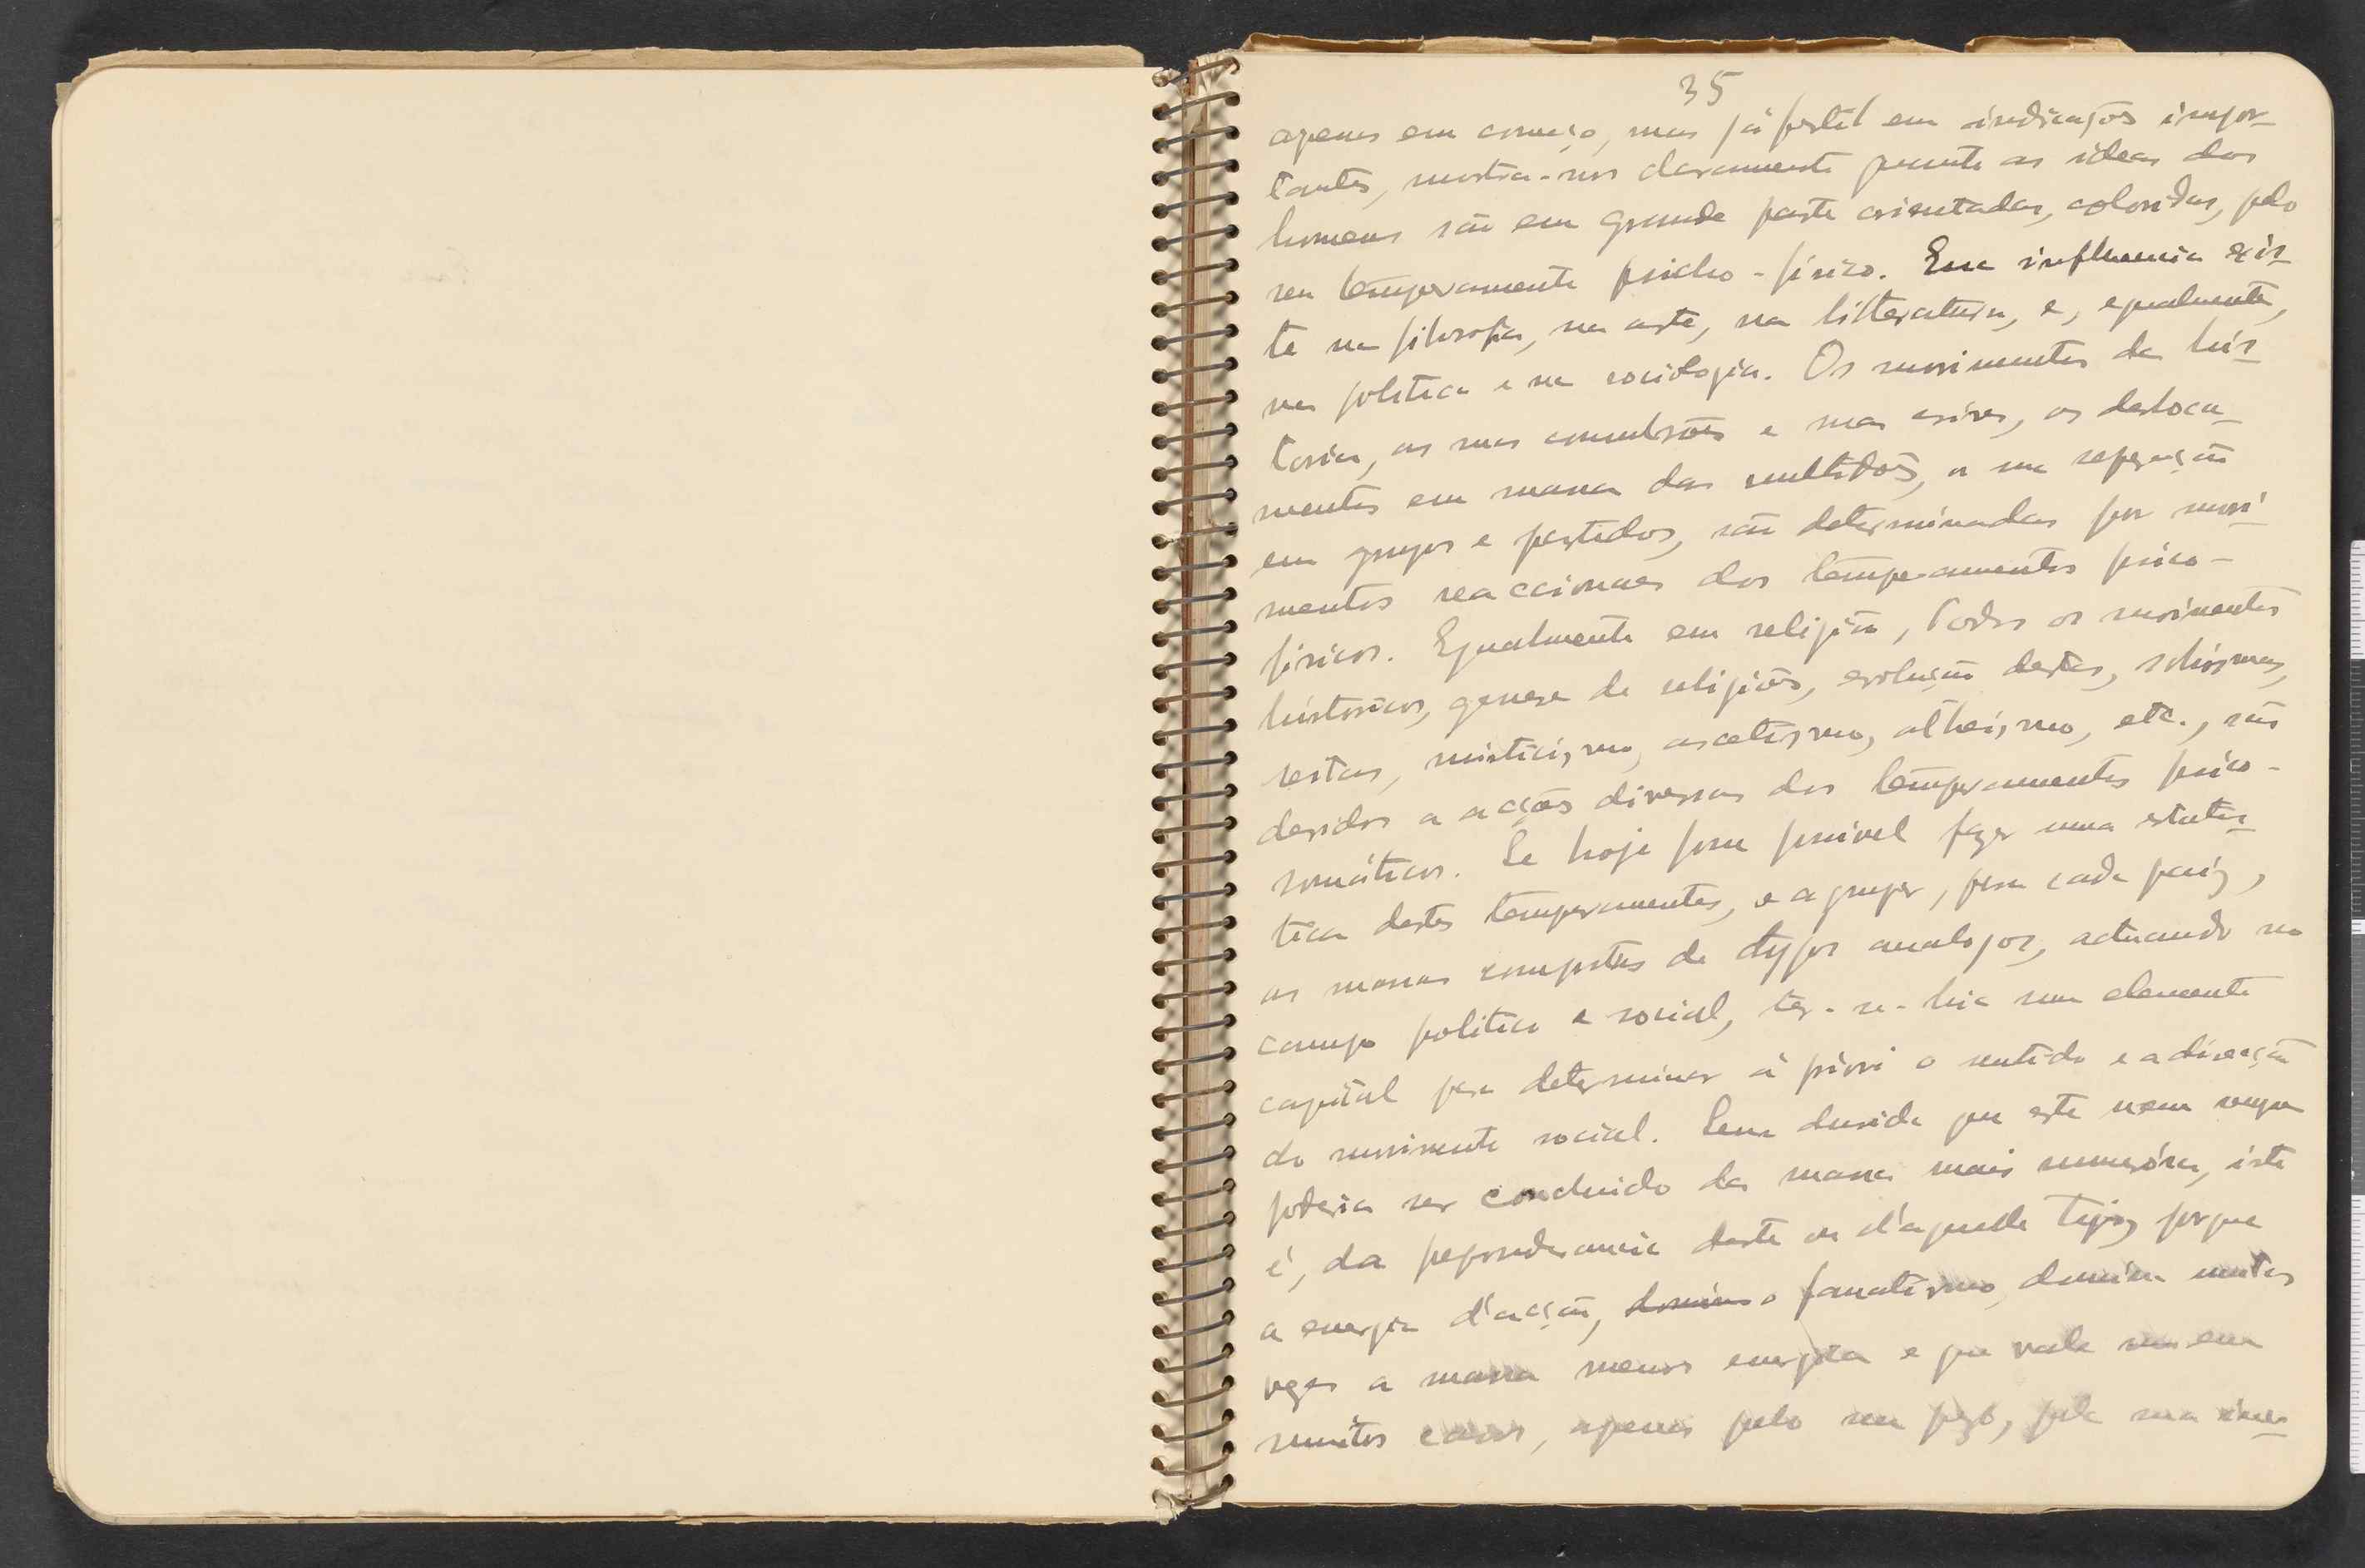 35
apenas em começo, mas já fertil em indicações impor-
tantes, mostra-nos claramente quanto as ideas dos
homens são em grande parte orientadas, coloridas, pelo
seu temperamento psicho-fisico. Essa influencia exis-
te na filosofia, na arte, na litteratura, e, egualmente,
na politica e na sociologia. Os movimentos da his-
toria, as suas convulsões e suas crises, os desloca-
mentos em massa das multidões, a sua separação
em grupos e partidos, são determinadas por movi-
mentos reaccionaes dos temperamentos psico-
fisicos. Egualmente em religião, todos os movimentos
historicos, genese de religiões, evolução destas, schismas,
seitas, misticismo, ascetismo, atheismo, etc., são
devidos a acções diversas dos temperamentos psico-
somáticos. Se hoje fosse possivel fazer uma estatis-
tica destes temperamentos, e agrupar, para cada paiz,
as massas compostas de typos analogos, actuando no
campo politico e social, ter-se-hia um elemento
capital para determinar á priori o sentido e a direcção
do movimento social. Sem duvida que este nem sempre
poderia ser concluido da massa mais numerósa, isto
é, da preponderancia deste ou d'aquelle tipo, porque
a energia d'acção, domina o fanatismo, domina muitas
vezes a massa menos energica e que vale em
muitos casos, apenas pelo seu pezo, pela sua iner-